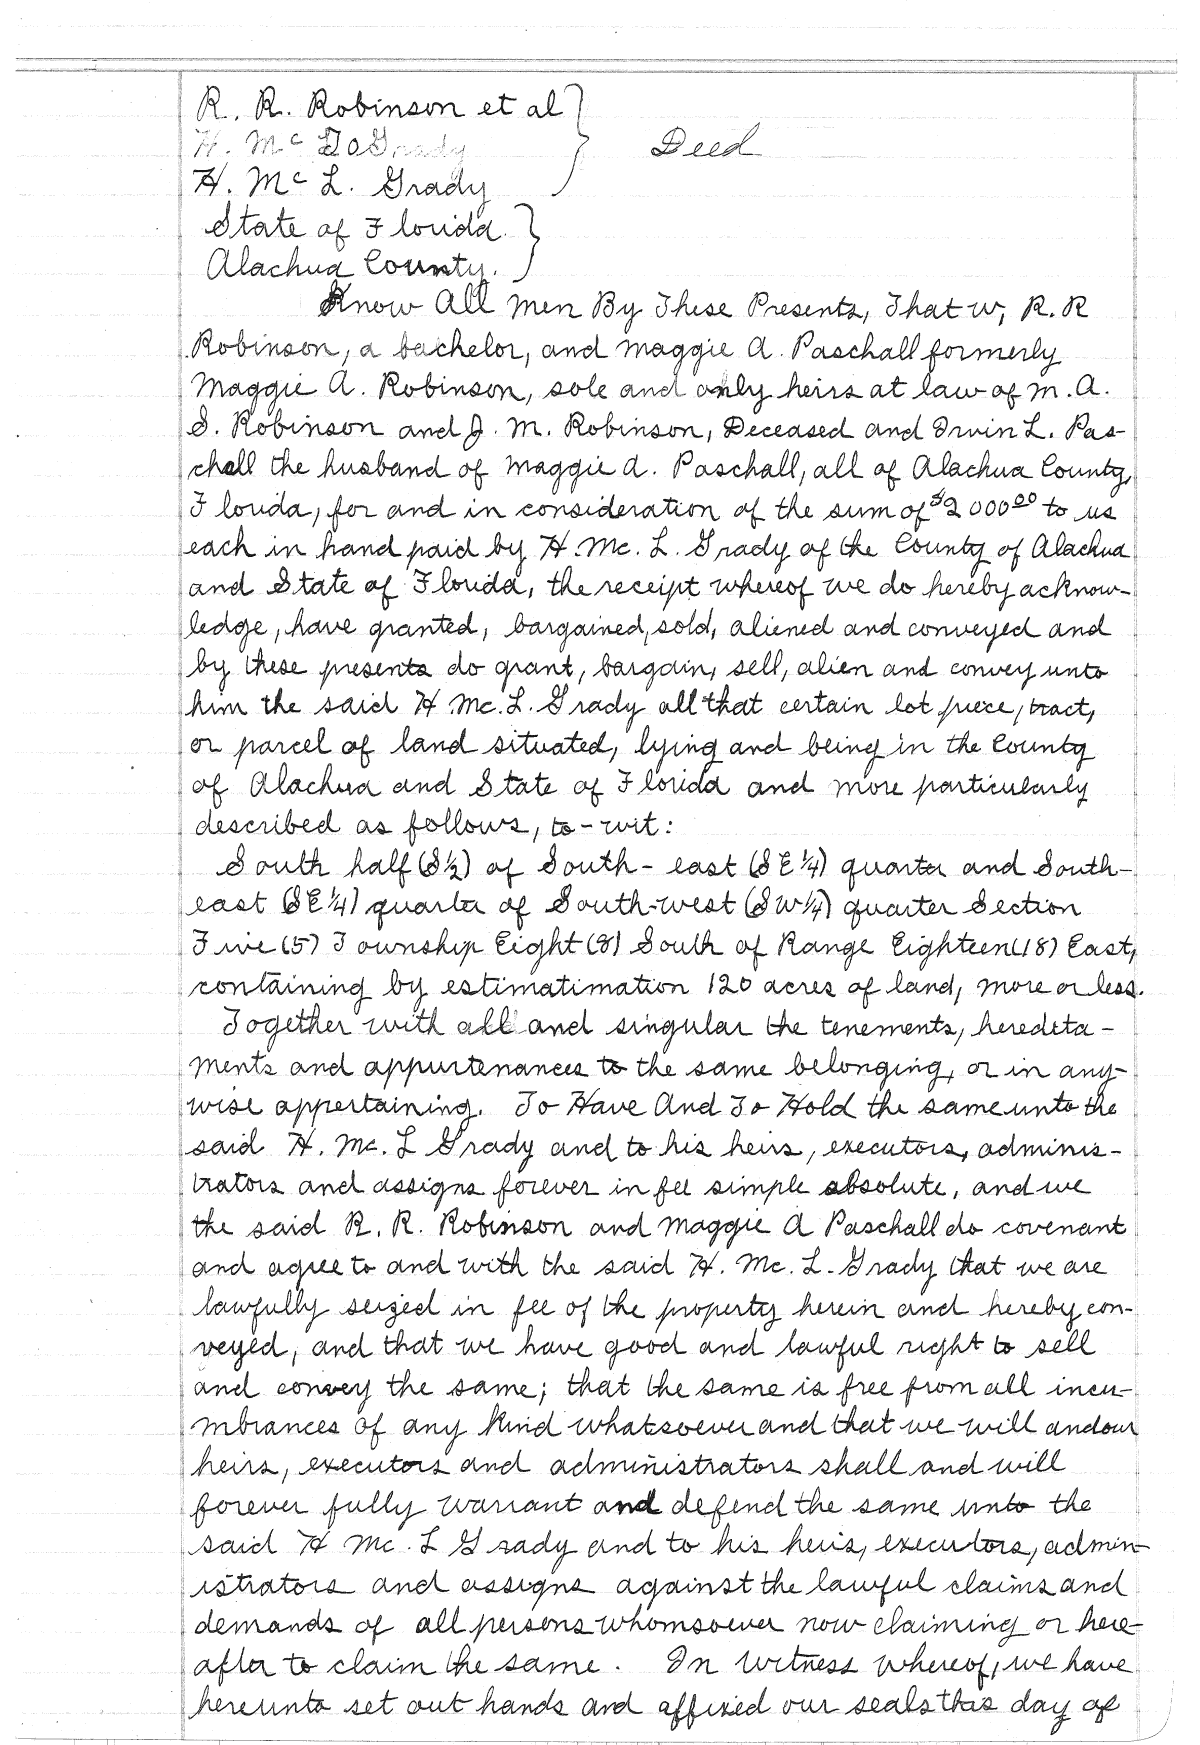 R. R. Robinson et al
H. Mc
H. Mc L. Grady
Deed
State of Florida.
Alachua County.
Know All Men By These Presents, That w, R. R
Robinson, a bachelor, and Maggie A. Paschall formerly
Maggie A. Robinson, sole and only heirs at law of M. A.
S. Robinson and J. M. Robinson, Deceased and Irvin L. Pas-
chall the husband of Maggie A. Paschall, all of Alachua County,
Florida, for and in consideration of the sum of $2000.00 to us
each in hand paid by H. Mc. L. Grady of the County of Alachua
and State of Florida, the receipt whereof we do hereby acknow-
ledge, have granted, bargained, sold, aliened and conveyed and
by these presents do grant, bargain, sell, alien and convey unto
him the said H Mc. L. Grady all that certain lot, piece, tract,
or parcel of land situated, lying and being in the County
of Alachua and State of Florida and more particularly
described as follows, to-wit:
South half (S½) of South-east (SE¼) quarter and South-
east (SE¼) quarter of South-west (SW¼) quarter Section
Five (5) Township Eight (8) South of Range Eighteen (18) East,
containing by estimatimation 120 acres of land, more or less.
Together with all and singular the tenements, heredeta-
ments and appurtenances to the same belonging, or in any-
wise appertaining. To Have And To Hold the same unto the
said H. Mc. L Grady and to his heirs, executors, adminis-
trators and assigns forever in fee simple absolute, and we
the said R. R. Robinson and Maggie A Paschall do covenant
and agree to and with the said H. Mc. L. Grady that we are
lawfully seized in fee of the property herein and hereby con-
veyed, and that we have good and lawful right to sell
and convey the same; that the same is free from all incu-
mbrances of any kind whatsoever and that we will and our
heirs, executors and administrators shall and will
forever fully warrant and defend the same unto the
said H Mc. L Grady and to his heirs, executors, admin-
istrators and assigns against the lawful claims and
demands of all persons whomsoever now claiming or here-
after to claim the same. In witness whereof, we have
hereunto set out hands and affixed our seals this day of